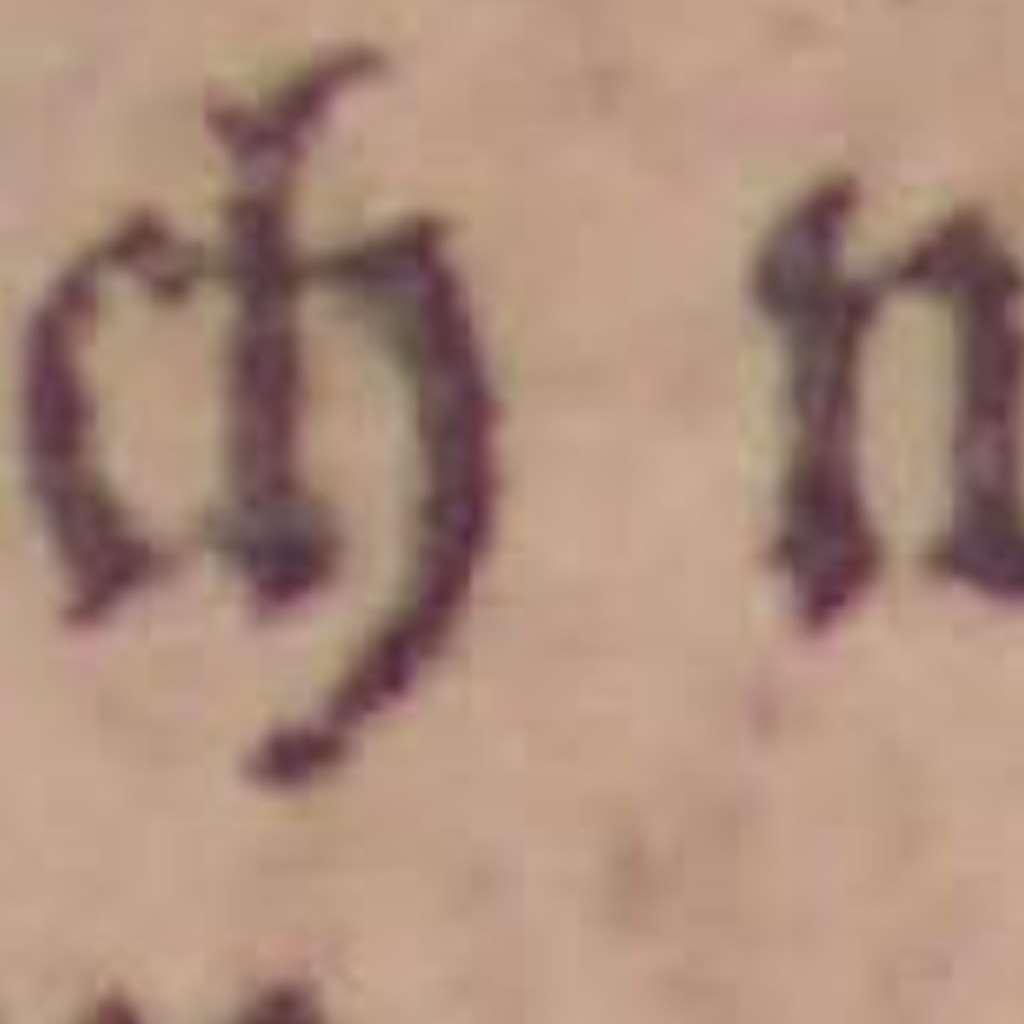 ch n